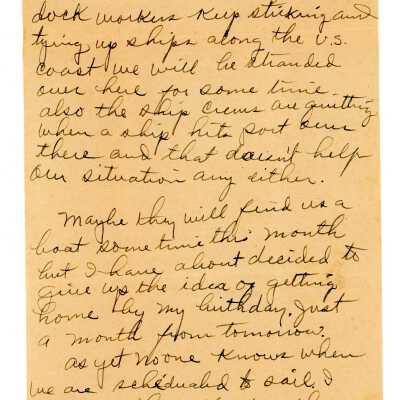 dock workers keep striking and
tying up ships along the U.S.
coast we will be stranded
over here for some time.
also the ship crews are quitting
when a ship hits port over
there and that doesn't help
our situation any either.
Maybe they will find us a
boat sometime this month
but I have about decided to
give up the idea of getting
home by my birthday. Just
a month from tomorrow.
as yet no one knows when
we are scheduled to sail. I